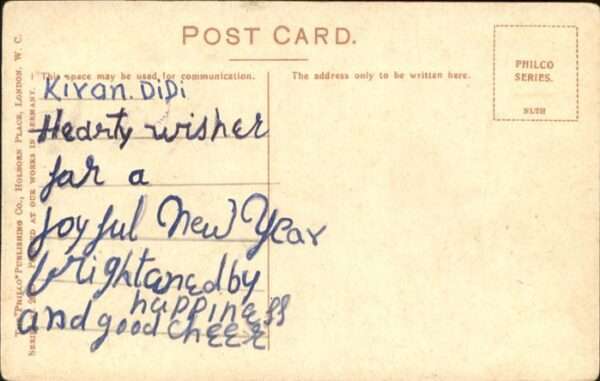 POST CARD.
PHILCO
SERIES.
This space may be used for communication.
The address only to be written here.
Kiran. DiDi
Hearty wisher
far a
joyful New Year
brightanedby
happineff
and good cheer
"PHILCO" PUBLISHING CO., HOLBORN PLACE, LONDON, W. C.
AT OUR WORKS IN GERMANY.